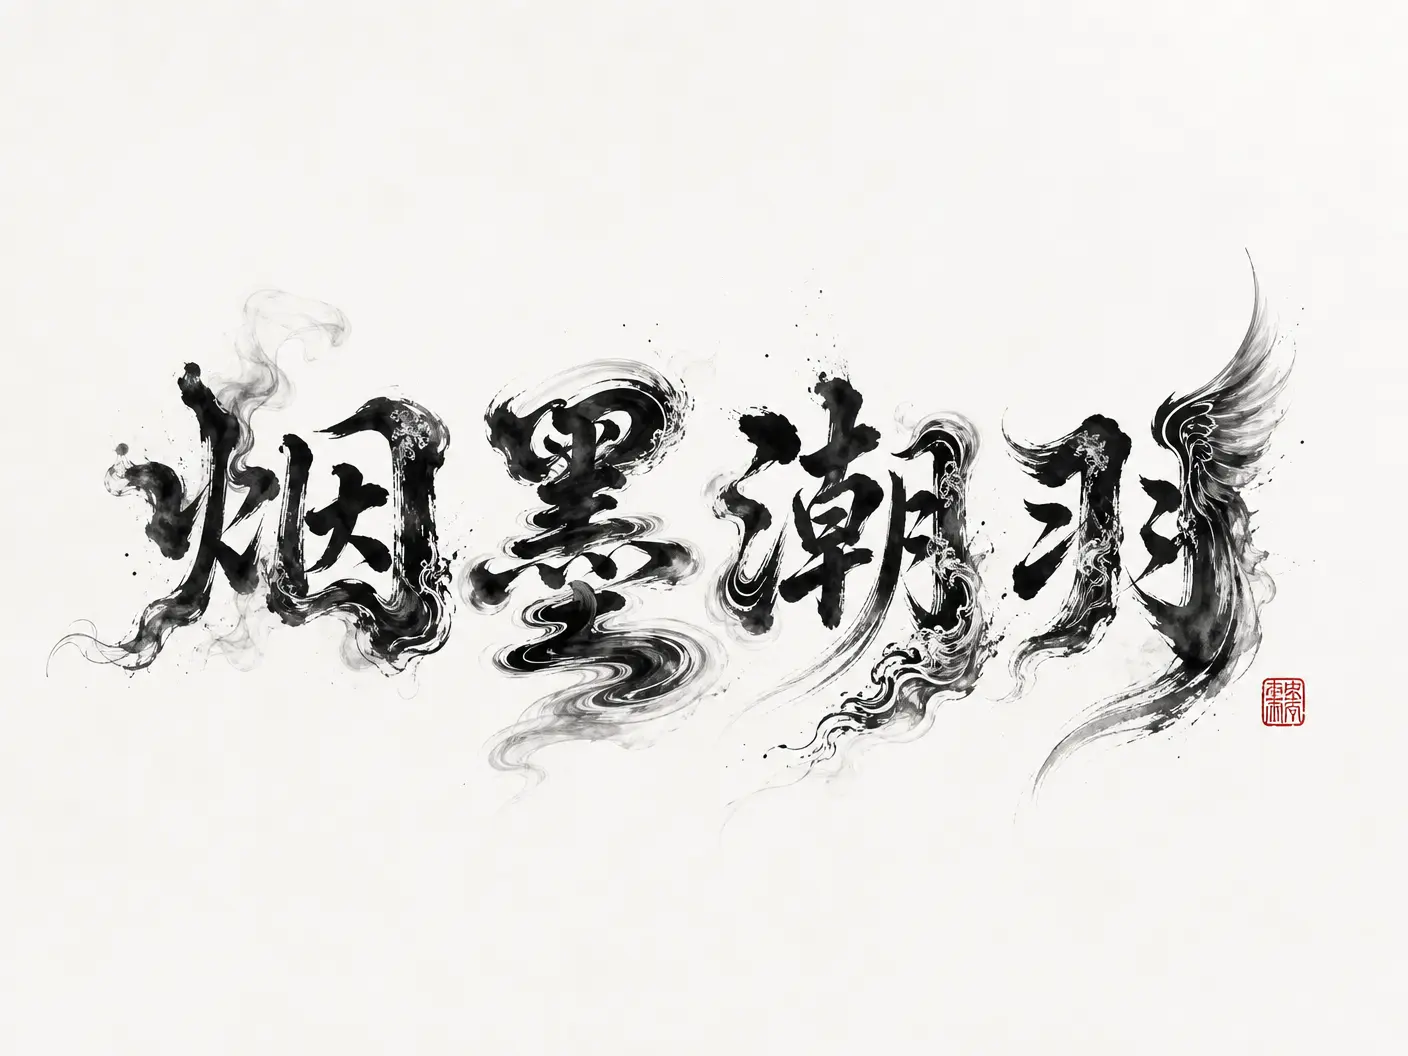 烟墨潮羽